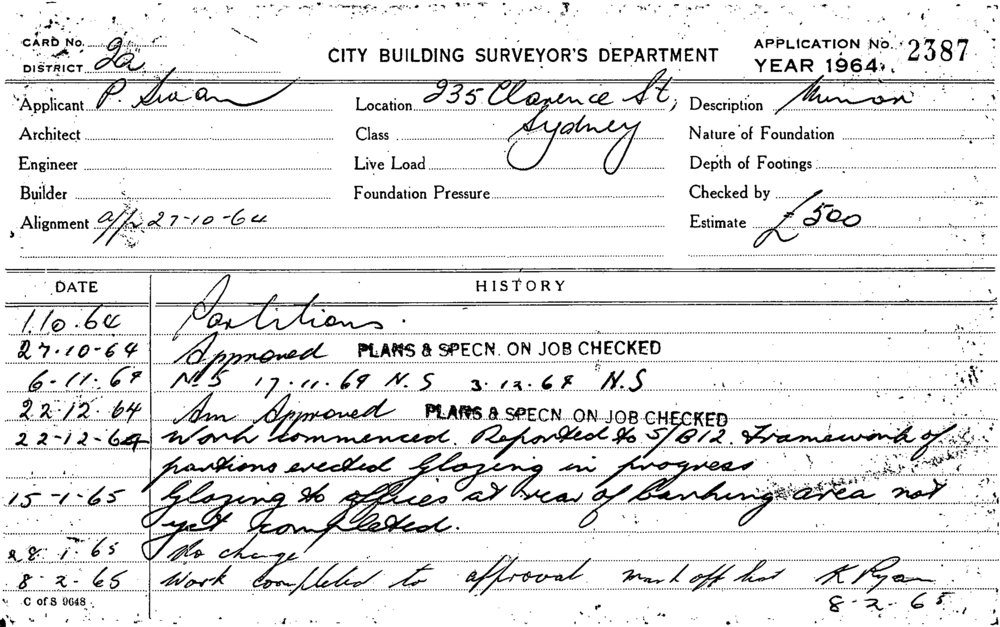 CARD No.
DISTRICT 2a
CITY BUILDING SURVEYOR'S DEPARTMENT
APPLICATION No. 2387
YEAR 1964
Applicant P. Swan
Location 235 Clarence St,
Sydney
Description Minor
Architect
Class
Nature of Foundation
Engineer
Live Load
Depth of Footings
Builder
Foundation Pressure
Checked by
Alignment app 27-10-64
Estimate £500
DATE HISTORY
1.10.64 Partitions.
27.10-64 Approved PLANS & SPECN. ON JOB CHECKED
6-11.64 N.S 17.11.64 N.S 3.12.64 N.S
22.12.64 Am Approved PLANS & SPECN ON JOB CHECKED
22-12-64 Work commenced. Reported to S/B12. Framework of
partions erected Glazing in progress
15-1-65 Glazing to offices at rear of banking area not
yet completed.
28.1.65 No change
8-2-65 Work completed to approval mark off list K Ryan
8-2-65
C of S 9648